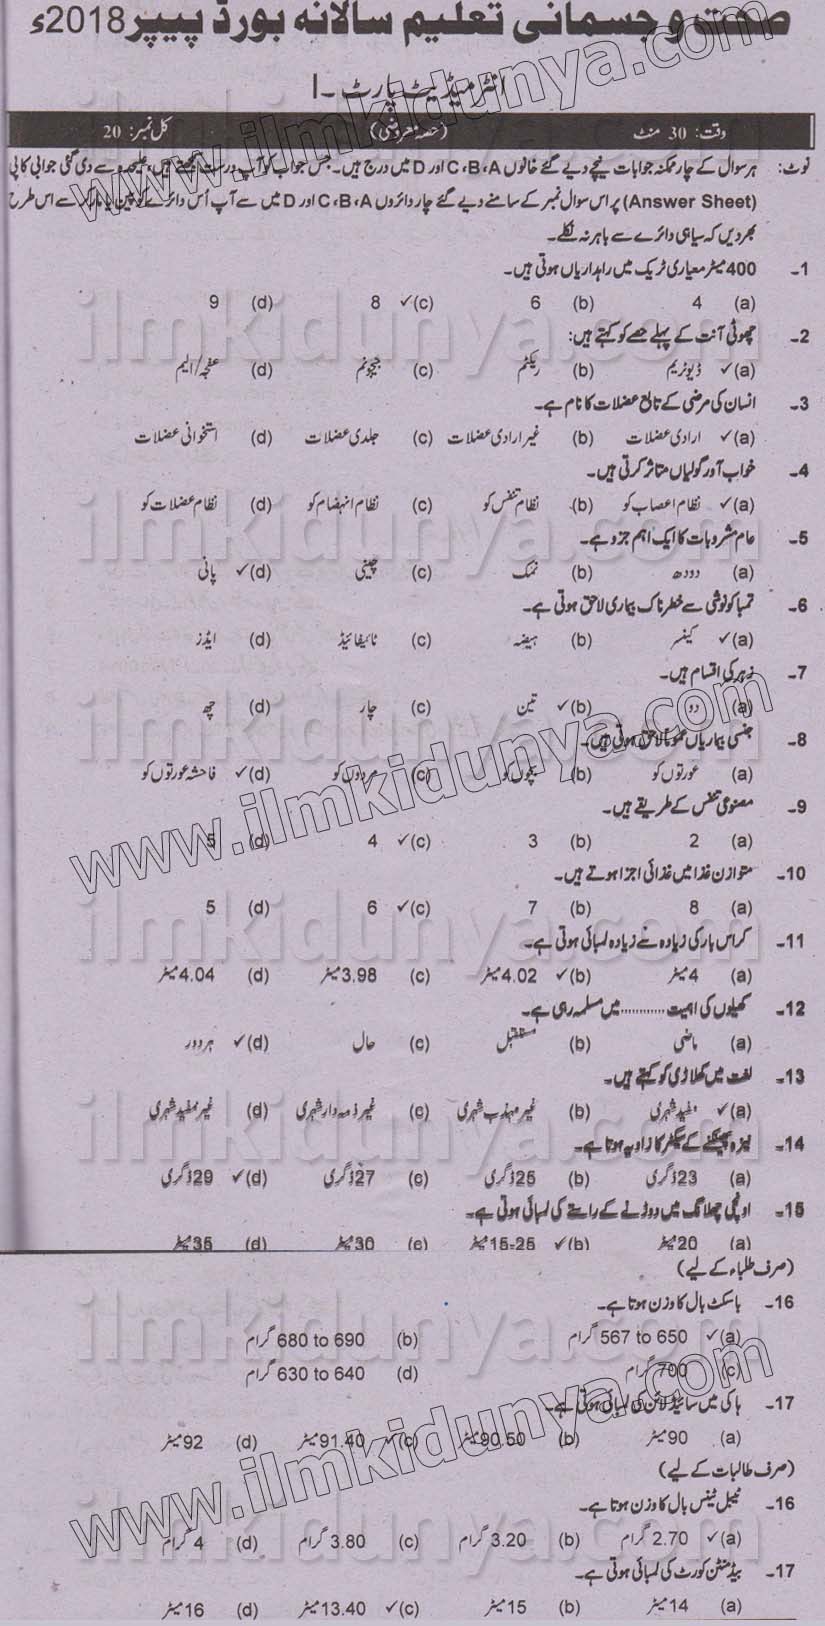 صحت و جسمانی تعلیم سالانہ بورڈ پیپر 2018ء
انٹرمیڈیٹ پارٹ ۔ I
وقت: 30 منٹ (حصہ معروضی) کل نمبر: 20
نوٹ: ہر سوال کے چار ممکنہ جوابات نیچے دیے گئے خانوں A،B،C اور D میں درج ہیں۔ جس جواب کو آپ درست سمجھتے ہیں، علیحدہ سے دی گئی جوابی کاپی
(Answer Sheet) پر اس سوال نمبر کے سامنے دیے گئے چار دائروں A،B،C اور D میں سے آپ اُس دائرے کو پین یا مارکر سے اس طرح
بھر دیں کہ سیاہی دائرے سے باہر نہ نکلے۔
1۔ 400 میٹر معیاری ٹریک میں راہداریاں ہوتی ہیں۔
(a) 4 (b) 6 (c)✓ 8 (d) 9
2۔ چھوٹی آنت کے پہلے حصے کو کہتے ہیں:
(a)✓ ڈیوڈینم (b) ریکٹم (c) جیجونم (d) عفجہ/الیم
3۔ انسان کی مرضی کے تابع عضلات کا نام ہے۔
(a)✓ ارادی عضلات (b) غیر ارادی عضلات (c) جلدی عضلات (d) استخوانی عضلات
4۔ خواب آور گولیاں متاثر کرتی ہیں۔
(a)✓ نظام اعصاب کو (b) نظام تنفس کو (c) نظام انہضام کو (d) نظام عضلات کو
5۔ عام مشروبات کا ایک اہم جزو ہے۔
(a) دودھ (b) نمک (c) چینی (d)✓ پانی
6۔ تمباکونوشی سے خطرناک بیماری لاحق ہوتی ہے۔
(a)✓ کینسر (b) ہیضہ (c) ٹائیفائیڈ (d) ایڈز
7۔ زہر کی اقسام ہیں۔
(a) دو (b)✓ تین (c) چار (d) چھ
8۔ جنسی بیماریاں عموماً لاحق ہوتی ہیں۔
(a) عورتوں کو (b) بچوں کو (c) مردوں کو (d)✓ فاحشہ عورتوں کو
9۔ مصنوعی تنفس کے طریقے ہیں۔
(a) 2 (b) 3 (c)✓ 4 (d) 5
10۔ متوازن غذا میں غذائی اجزا ہوتے ہیں۔
(a) 8 (b) 7 (c)✓ 6 (d) 5
11۔ کراس بار کی زیادہ سے زیادہ لمبائی ہوتی ہے۔
(a) 4 میٹر (b)✓ 4.02 میٹر (c) 3.98 میٹر (d) 4.04 میٹر
12۔ کھیلوں کی اہمیت ............ میں مسلمہ رہی ہے۔
(a) ماضی (b) مستقبل (c) حال (d)✓ ہر دور
13۔ لغت میں کھلاڑی کو کہتے ہیں۔
(a)✓ مفید شہری (b) غیر مہذب شہری (c) غیر ذمہ دار شہری (d) غیر مفید شہری
14۔ نیزہ پھینکنے کے سیکٹر کا زاویہ ہوتا ہے۔
(a) 23 ڈگری (b) 25 ڈگری (c) 27 ڈگری (d)✓ 29 ڈگری
15۔ اونچی چھلانگ میں دوڑنے کے راستے کی لمبائی ہوتی ہے۔
(a) 20 میٹر (b)✓ 15-25 میٹر (c) 30 میٹر (d) 35 میٹر
(صرف طلباء کے لیے)
16۔ باسکٹ بال کا وزن ہوتا ہے۔
(a)✓ 567 to 650 گرام (b) 680 to 690 گرام
(c) 700 گرام (d) 630 to 640 گرام
17۔ ہاکی میں سائیڈ لائن کی لمبائی ہوتی ہے۔
(a) 90 میٹر (b) 90.50 میٹر (c)✓ 91.40 میٹر (d) 92 میٹر
(صرف طالبات کے لیے)
16۔ ٹیبل ٹینس بال کا وزن ہوتا ہے۔
(a)✓ 2.70 گرام (b) 3.20 گرام (c) 3.80 گرام (d) 4 گرام
17۔ بیڈمنٹن کورٹ کی لمبائی ہوتی ہے۔
(a) 14 میٹر (b) 15 میٹر (c)✓ 13.40 میٹر (d) 16 میٹر
www.ilmkidunya.com
ilmkidunya.com
ilmkidunya.com
www.ilmkidunya.com
ilmkidunya.com
ilmkidunya.com
ilmkidunya.com
ilmkidunya.com
www.ilmkidunya.com
ilmkidunya.com